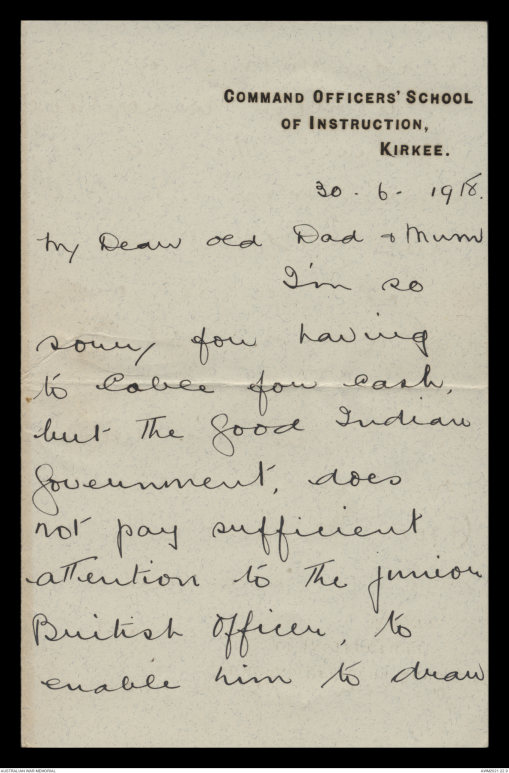 COMMAND OFFICERS' SCHOOL
OF INSTRUCTION,
KIRKEE.
30 - 6 - 1918.
My Dear old Dad & Mum
I'm so
sorry for having
to Cable for cash,
but the Good Indian
Government, does
not pay sufficient
attention to the junior
British Officer, to
enable him to draw
AUSTRALIAN WAR MEMORIAL